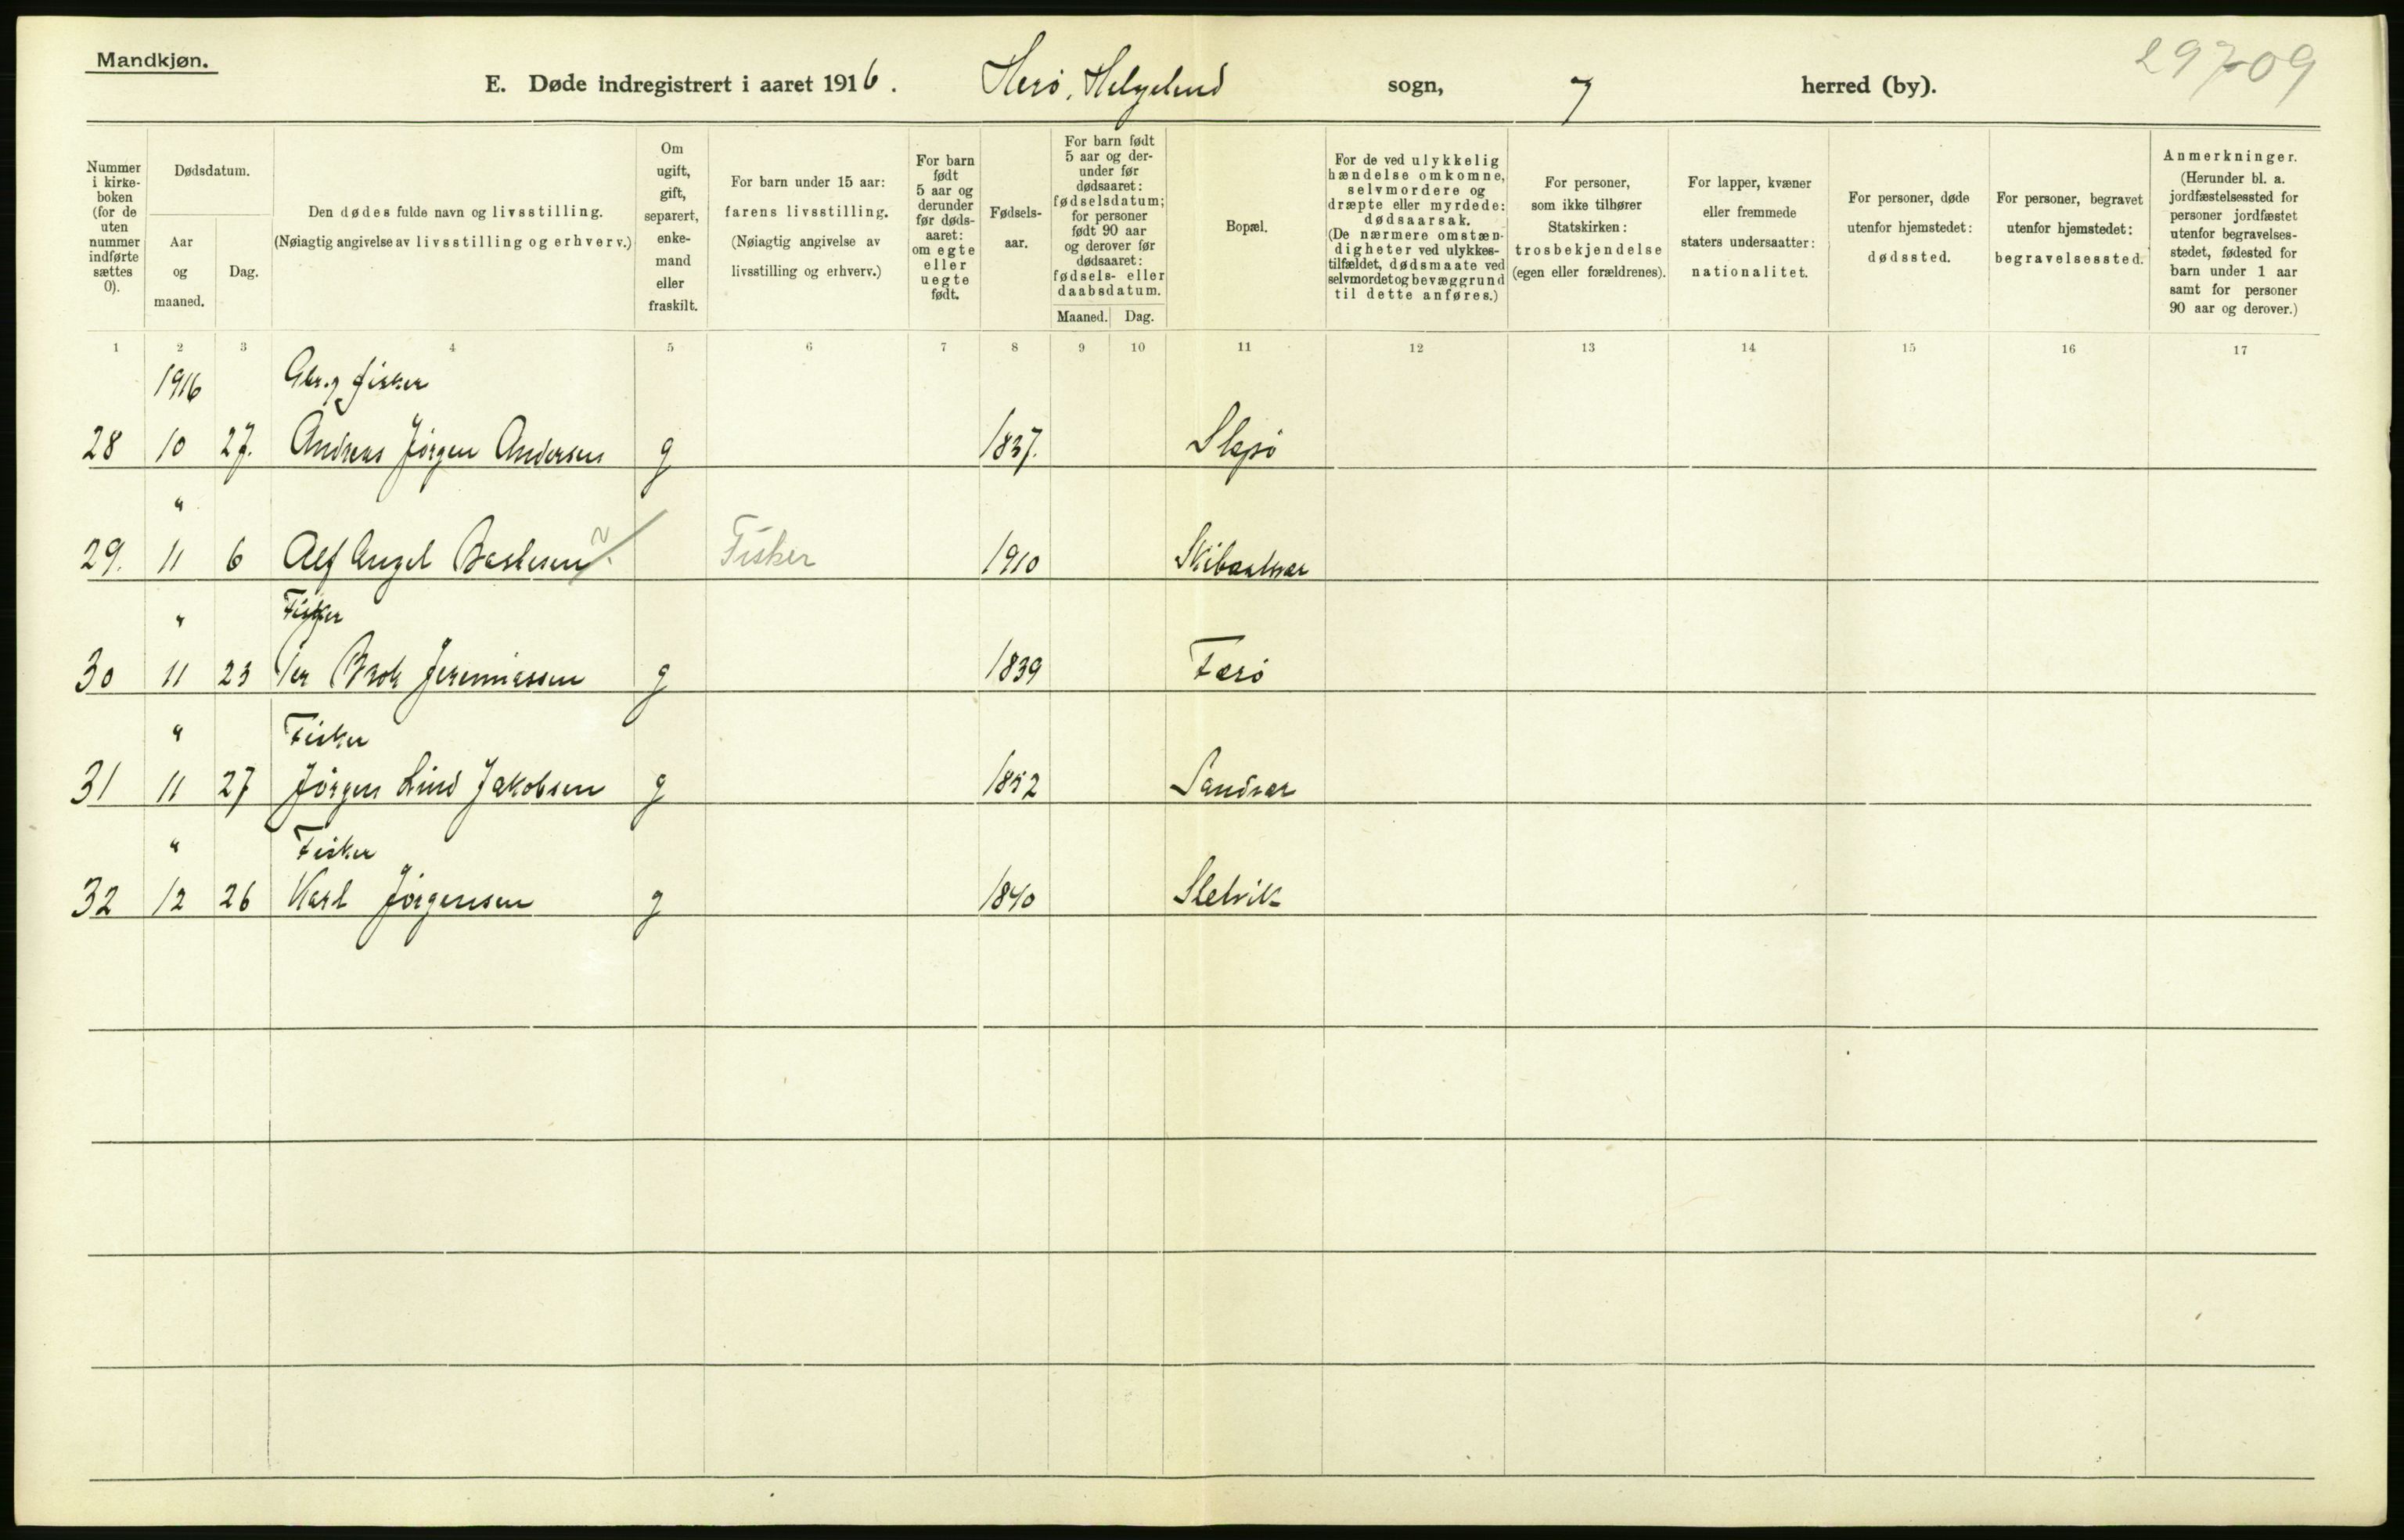 Mandkjøn.
E. Døde indregistrert i aaret 1916. Herø, Helgeland sogn, herred (by).
29709
Nummer i kirkeboken (for de uten nummer indførte sættes 0).
Dødsdatum.
Aar og maaned.
Dag.
Den dødes fulde navn og livsstilling.
(Nøiagtig angivelse av livsstilling og erhverv.)
Om ugift, gift, separert, enkemand eller fraskilt.
For barn under 15 aar: farens livsstilling.
(Nøiagtig angivelse av livsstilling og erhverv.)
For barn født 5 aar og derunder før dødsaaret: om egte eller uegte født.
Fødselsaar.
For barn født 5 aar og derunder før dødsaaret: fødselsdatum; for personer født 90 aar og derover før dødsaaret: fødsels- eller daabsdatum.
Maaned. Dag.
Bopæl.
For de ved ulykkelig hændelse omkomne, selvmordere og dræpte eller myrdede: dødsaarsak.
(De nærmere omstændigheter ved ulykkestilfældet, dødsmaate ved selvmordet og bevæggrund til dette anføres.)
For personer, som ikke tilhører Statskirken: trosbekjendelse (egen eller forældrenes).
For lapper, kvæner eller fremmede staters undersaatter: nationalitet.
For personer, døde utenfor hjemstedet: dødssted.
For personer, begravet utenfor hjemstedet: begravelsessted.
Anmerkninger.
(Herunder bl. a. jordfæstelsessted for personer jordfæstet utenfor begravelsesstedet, fødested for barn under 1 aar samt for personer 90 aar og derover.)
1 2 3 4 5 6 7 8 9 10 11 12 13 14 15 16 17
1916 Gbr. fisker
28 10 27. Andreas Jörgen Andersen g 1837. Slapö
"
29. 11 6 Alf Angel Bastesen Fisker 1910 Skibaatsvær
" Fisker
30 11 23 Per Brok Jeremiassen g 1839 Færö
" Fisker
31 11 27 Jörgen Lind Jakobsen g 1852 Sandvær
" Fisker
32 12 26 Karl Jörgensen g 1840 Sletvik